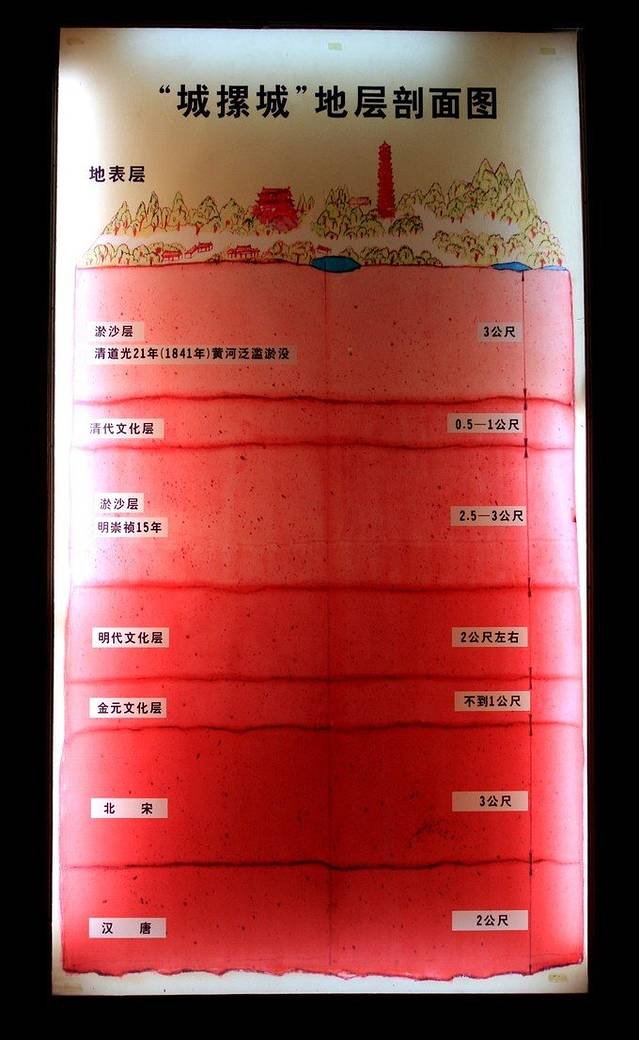 “城摞城”地层剖面图
地表层
淤沙层
清道光21年(1841年)黄河泛滥淤没
3公尺
清代文化层
0.5—1公尺
淤沙层
明崇祯15年
2.5—3公尺
明代文化层
2公尺左右
金元文化层
不到1公尺
北 宋
3公尺
汉 唐
2公尺